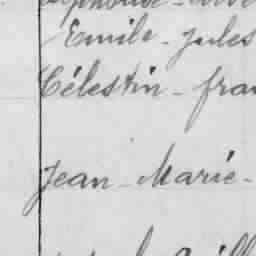 Emile - Jules
Célestin - fran
Jean - Marie -